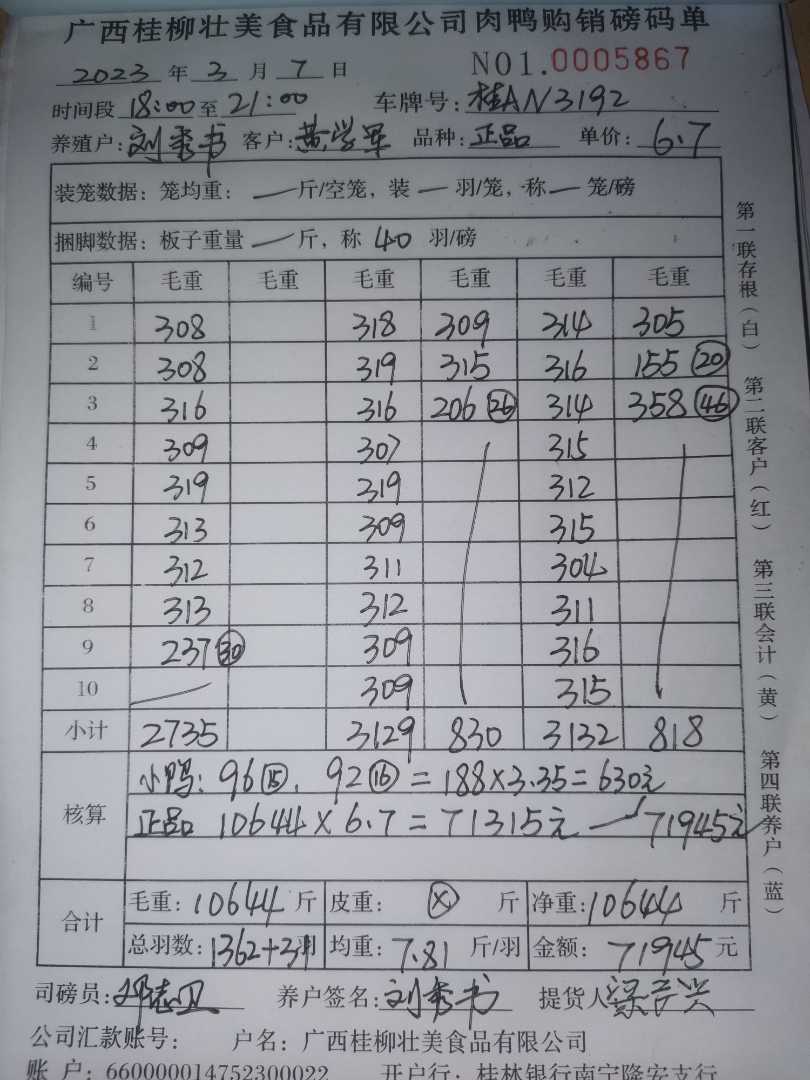 广西桂柳壮美食品有限公司肉鸭购销磅码单
2023 年 3 月 7 日 NO1.0005867
时间段 18:00 至 21:00 车牌号: 桂AN3192
养殖户: 刘秀书 客户: 黄学军 品种: 正品 单价: 6.7
装笼数据: 笼均重: — 斤/空笼, 装 — 羽/笼, 称 — 笼/磅
捆脚数据: 板子重量 — 斤, 称 40 羽/磅
编号 毛重 毛重 毛重 毛重 毛重 毛重
1 308 318 309 314 305
2 308 319 315 316 155 (20)
3 316 316 206 (26) 314 358 (46)
4 309 307 315
5 319 319 312
6 313 309 315
7 312 311 304
8 313 312 311
9 237 (30) 309 316
10 309 315
小计 2735 3129 830 3132 818
核算
小鸭: 96 (15), 92 (16) = 188×3.35=630元
正品 10644×6.7=71315元 — 71945元
合计
毛重: 10644 斤 皮重: ⊗ 斤 净重: 10644 斤
总羽数: 1362+31羽 均重: 7.81 斤/羽 金额: 71945 元
司磅员: 养户签名: 刘秀书 提货人
公司汇款账号: 户名: 广西桂柳壮美食品有限公司
账 户: 660000014752300022 开户行: 桂林银行南宁隆安支行
第一联存根(白) 第二联客户(红) 第三联会计(黄) 第四联养户(蓝)